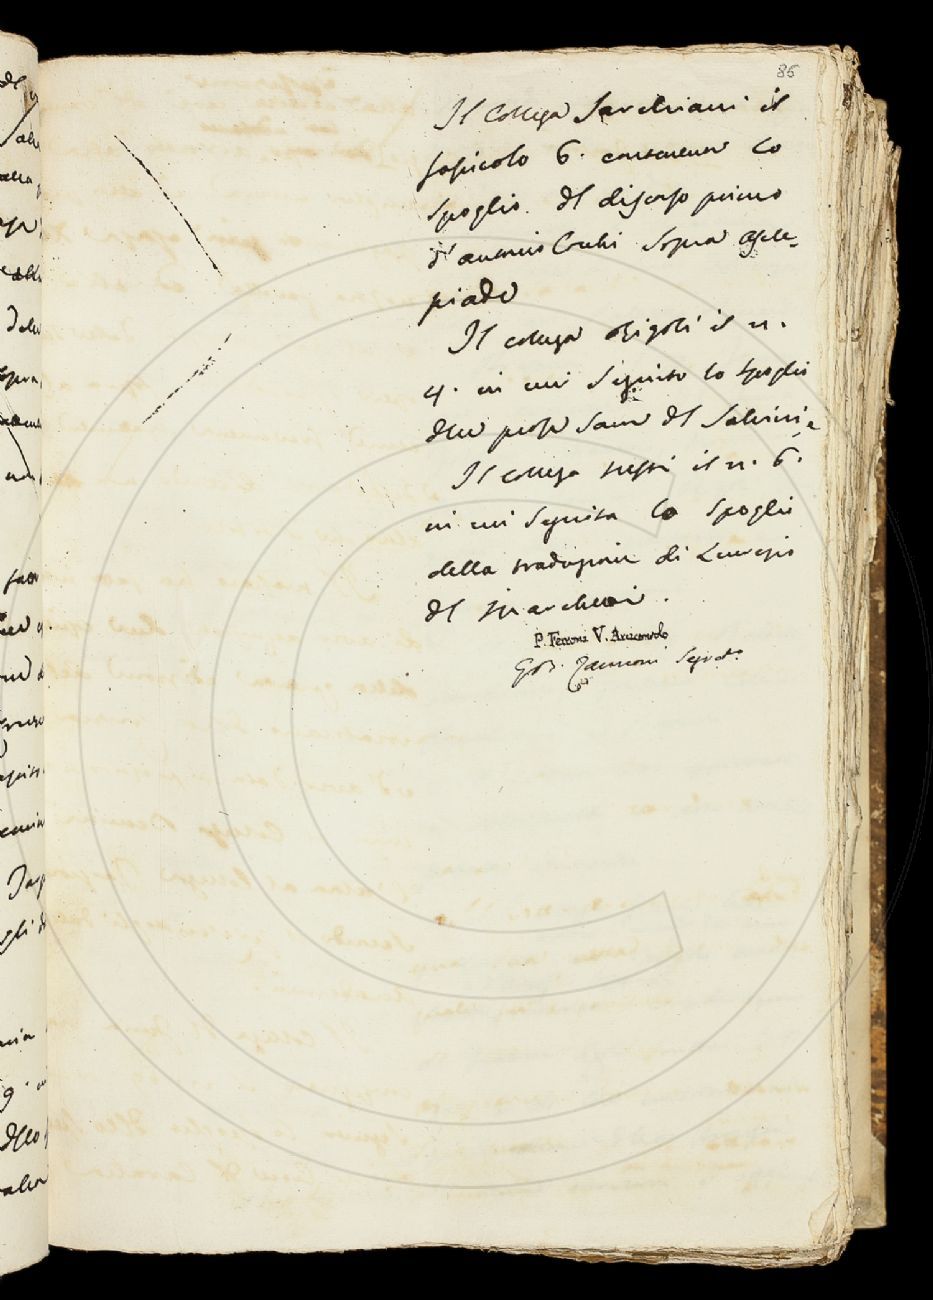 85
Il Collega Sarchiani il
fascicolo 6. contenente lo
spoglio del discorso primo
d'Antonio Cocchi sopra Ascle-
piade
Il collega Rigoli il n.
4. in cui seguita lo spoglio
delle prose sacre del Salvini.
Il collega il n. 6.
in cui seguita lo spoglio
della traduzione di Lucrezio
del Marchetti.
P. Ferroni V. Arciconsolo
G. B. Zannoni Segret.o